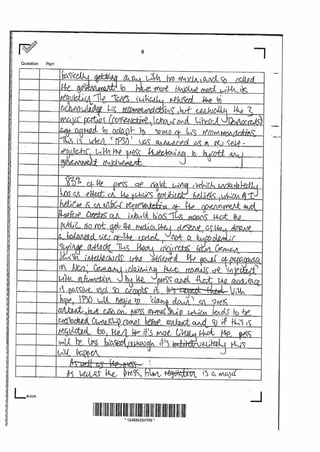 8
Question Part
basically getting away with too much, and so called
the government to have more involvement with its
regulation. The Tories initially refused to
acknowledge his recommendations, but eventually the 3
major parties (conservative, labour and Liberal Democrats)
agreed to adapt to some of his recommendations.
This is when 'IPSO' was announced as a self-
regulator, with the press threatening to boycott any
government involvement.
83% of the press are right wing, which undoubtedly
has an effect on the public's political beliefs, which I
believe is an unfair representation of the government and
therefore creates an inbuilt bias. This means that the
public do not get the media they deserve, as they deserve
a balanced view of the world, not a hypodermic
syringe attitude. This theory originates from German
intellectuals who observed the power of propaganda
in Nazi Germany, claiming that models are 'injected'
with information by the press and that the audience
is passive and so accepts it. With
hope, IPSO will begin to 'clamp down' on press
content, but also on press ownership which tends to be
overlooked. Ownership comes before content and so if this is
regulated to, then it's not likely that the press
will be less biased, although it's unlikely this
will happen.
As well as the press
As well as the press, film regulation is a major